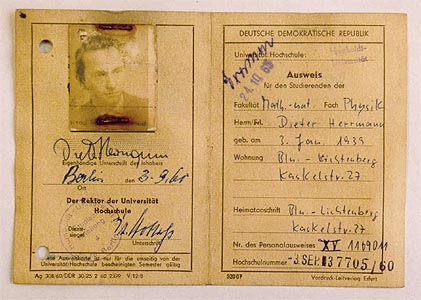 Dieter Herrmann
Eigenhändige Unterschrift des Inhabers
Berlin 3.9.60
Ort
Der Rektor der Universität
Hochschule
Dienst-
siegel
Unterschrift
Diese Ausweiskarte ist nur für die umseitig von der
Universität/Hochschule bescheinigten Semester gültig
Ag 308/60/DDR 30/25 2 60 2399 V-12-8
DEUTSCHE DEMOKRATISCHE REPUBLIK
Universität/Hochschule:
24.10.63
Ausweis
für den Studierenden der
Fakultät Math.-nat. Fach Physik
Herrn/Frl. Dieter Herrmann
am 3. Jan. 1939
Wohnung Bln.-Lichtenberg
Kaskelstr. 27
Heimatanschrift Bln.-Lichtenberg
Kaskelstr. 27
Nr. des Personalausweises XV 1169011
Hochschulnummer -3. SEP. 37705/60
52007 Vordruck-Leitverlag Erfurt